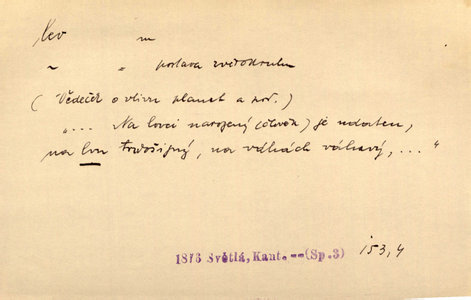 Lev m
~ „ postava zvěrokruhu
(Vědeček o vlivu planet a poř.)
„... Na lovci narozený (člověk) je udaten,
na lvu trdošijný, na váhách váhavý, ... “
1873 Světlá, Kant. -- (Sp.3) 153,4